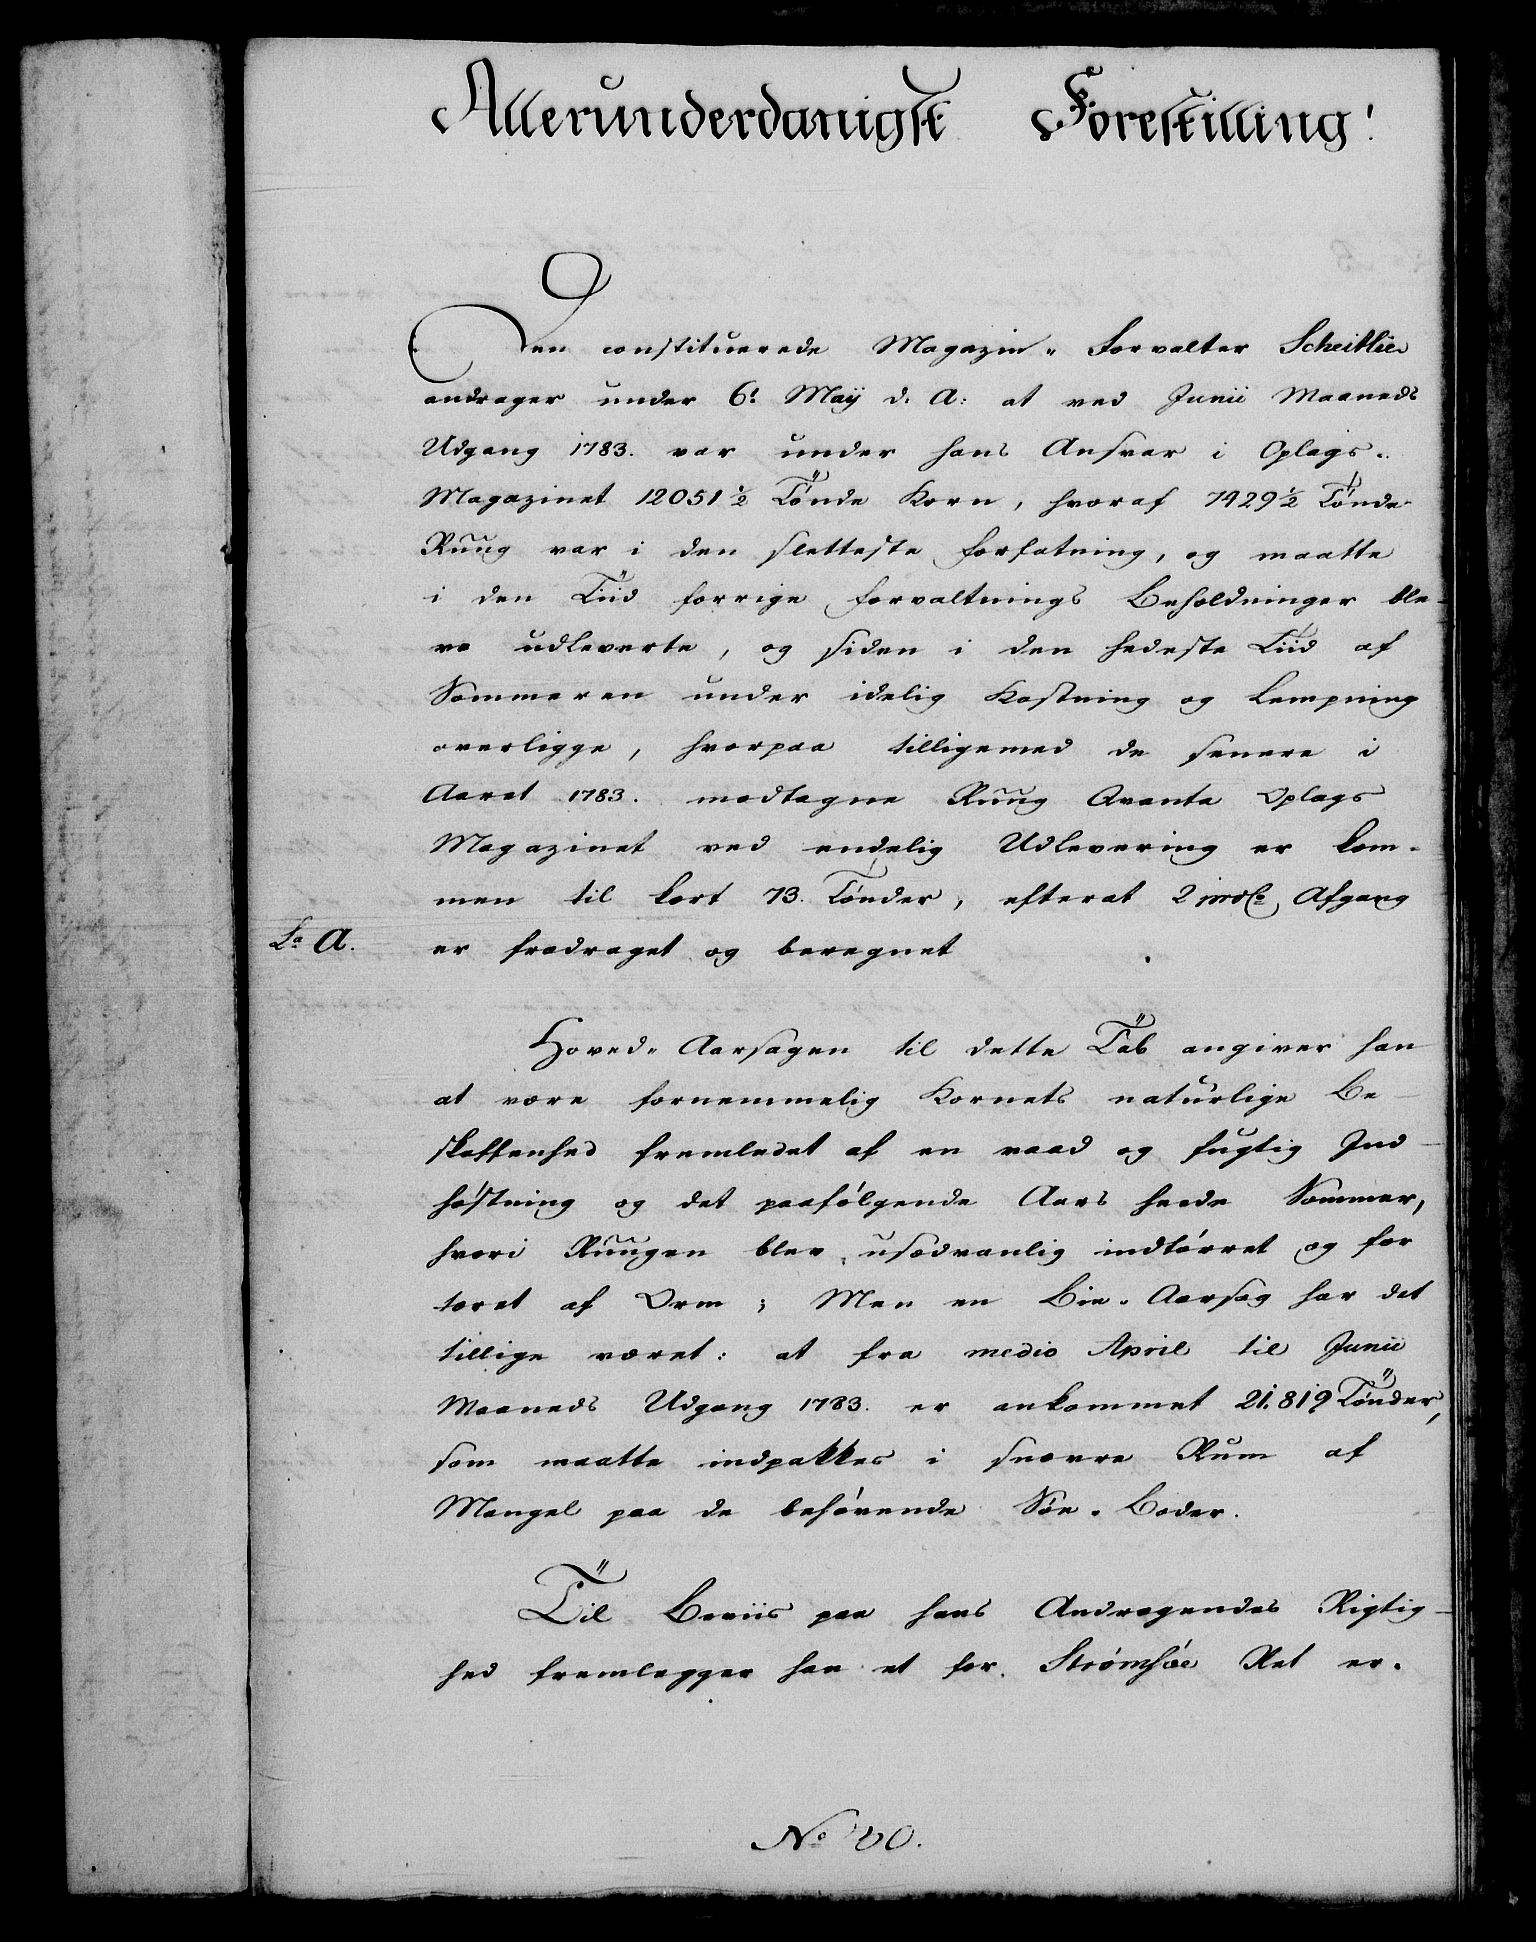 Allerunderdanigst Forestilling!
Den constituerede Magazin„ Forvalter Scheitlie
andrager under 6t May d. A: at ved Junii Maaneds
Udgang 1783. var under hans Ansvar i Oplags„
Magazinet 12051 1/2 Tønde Korn, hvoraf 7429 1/2 Tønde
Ruug var i den sletteste Forfatning, og maatte
i den Tiid forrige Forvaltnings Beholdninger ble-
ve udleverte, og siden i den hedeste Tiid af
Sommeren under idelig Kastning og Lempning
overligge, hvorpaa tilligemed de senere i
Aaret 1783. modtagne Ruug Qvanta Oplags
Magazinet ved endelig Udlevering er kom-
men til kort 73. Tønder, efterat 2 Afgang
La A. er fradraget og beregnet
Hoved„ Aarsagen til dette Tab angiver han
at være fornemmelig Kornets naturlige Be-
skaffenhed fremledet af en vaad og fugtig Ind-
høstning og det paafølgende Aars heede Sommer,
hvori Ruugen blev usædvanlig indtørret og for
tæret af Orm; Men en Bie„ Aarsag har det
tillige været: at fra medio April til Junii
Maaneds Udgang 1783. er ankommet 21.819 Tønder,
som maatte indpakkes i snævre Rum af
Mangel paa de behøvende Søe„ Boder.
Til Beviis paa hans Andragendes Rigtig-
hed fremlegger han et for Strømsøe Ret er-
No